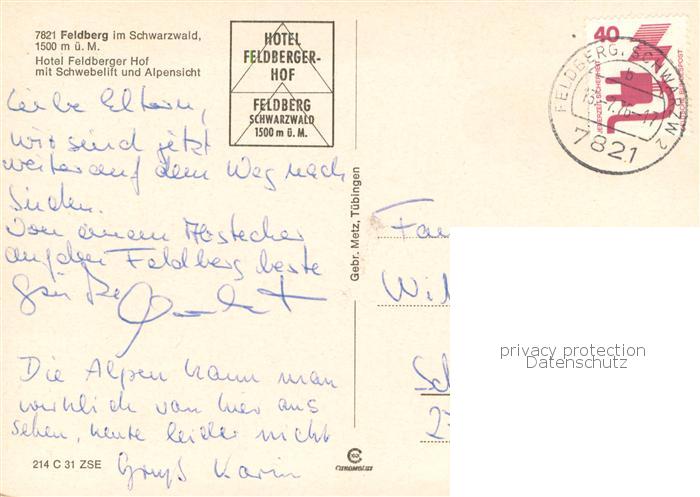 7821 Feldberg im Schwarzwald,
1500 m ü. M.
Hotel Feldberger Hof
mit Schwebelift und Alpensicht
HOTEL
FELDBERGER-
HOF
FELDBERG
SCHWARZWALD
1500 m ü. M.
40
JEDERZEIT SICHERHEIT
DEUTSCHE BUNDESPOST
FELDBERG, SCHWARZW 2
b
7821
Liebe Eltern,
wir sind jetzt
weiter auf dem Weg nach
Süden.
Von einem Abstecher
auf den Feldberg beste
Grüße
Die Alpen kann man
wirklich von hier aus
sehen, heute leider nicht
Gruß Karin
214 C 31 ZSE
Gebr. Metz, Tübingen
CHROMOLUX
Fam
Wil
Sch
privacy protection
Datenschutz